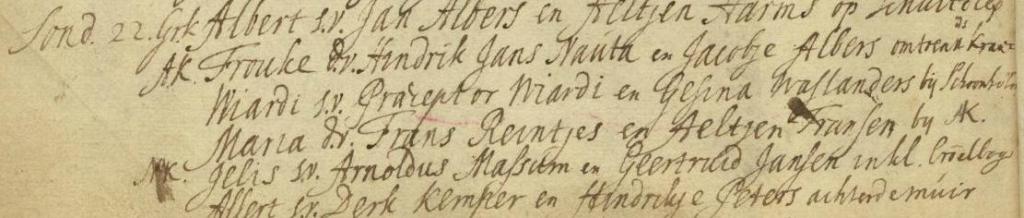 Sond. 22. Grk Albert s.v. Jan Albers en Aeltjen Harms op Schuitediep
AK. Frouke d.v. Hindrik Jans Nauta en Jacobje Albers omtrent de Kraan
Wiardi s.v. Præceptor Wiardi en Gesina Waslanders bij
Maria d.v. Frans Reintjes en Aeltjen Fransen by AK.
NK. Jelis s.v. Arnoldus Massum en Geertruid Jansen in kl.
Allert s.v. Derk Kemper en Hindrikje Peters achter de muir